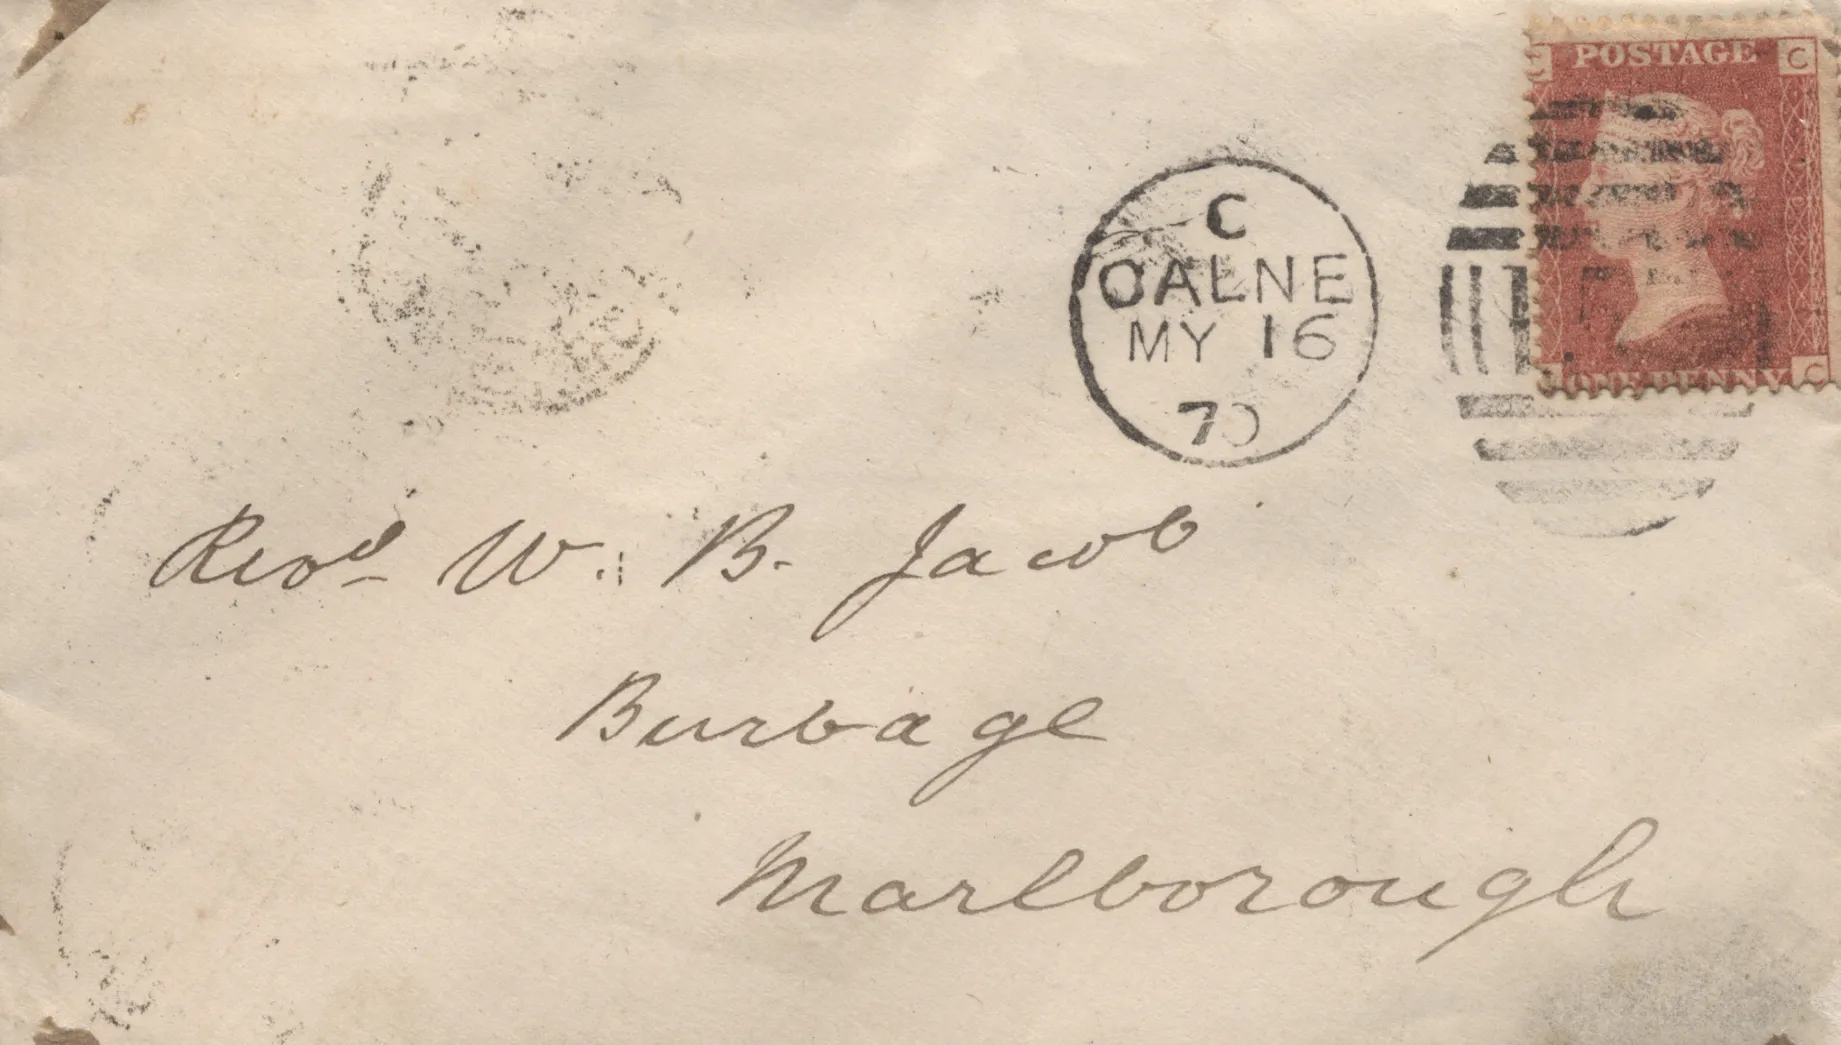 POSTAGE C
C
CALNE
MY 16
70
PENNY C
Revd W. B. Jacob
Burbage
Marlborough